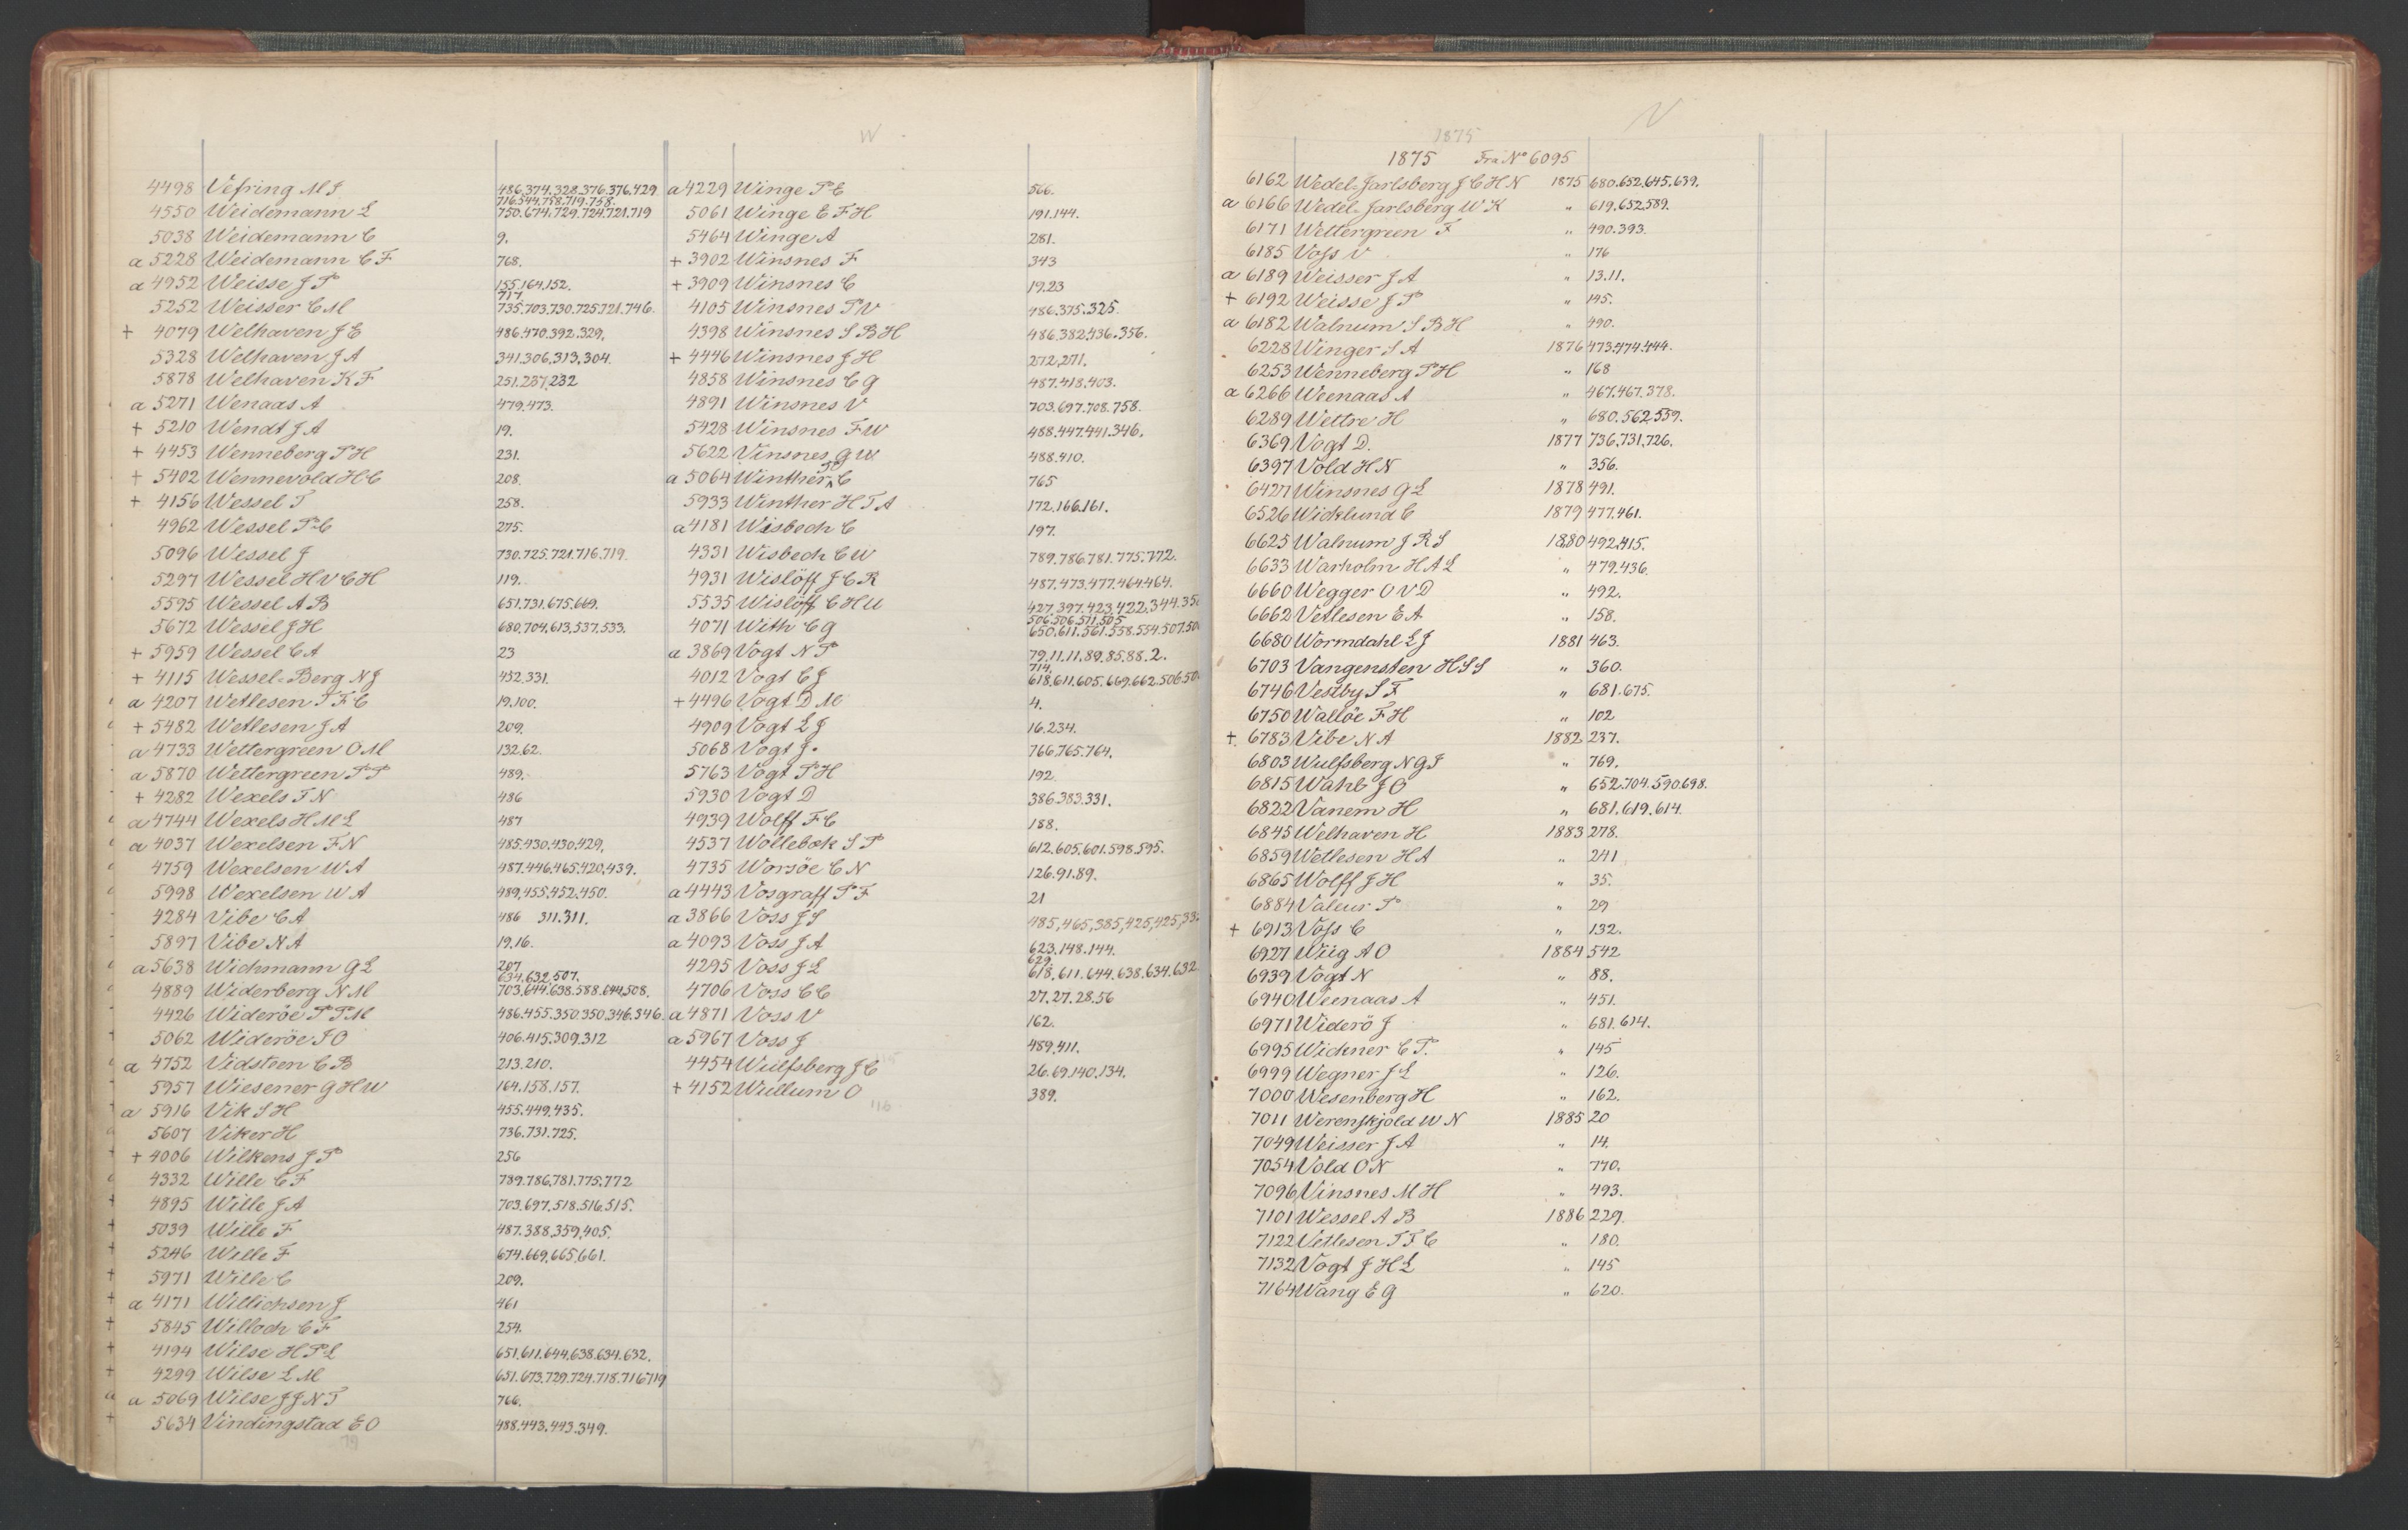 W
4498 Vefring M J 486.374.328.376.376.429
716.544.758.719.758.
4550 Weidemann L 750.674.729.724.721.719
5038 Weidemann C 9.
a 5228 Weidemann C F 768.
a 4952 Weisse J P 155.164.152.
717
5252 Weisser C M 735.703.730.725.721.746.
+ 4079 Welhaven J E 486.470.392.329.
5328 Welhaven J A 341.306.313.304.
5878 Welhaven K F 251.237.232
a 5271 Wenaas A 479.473.
+ 5210 Wendt J A 19.
+ 4453 Wenneberg P H 231.
+ 5402 Wennevold H C 208.
+ 4156 Wessel T 258.
4962 Wessel P C 275.
5096 Wessel J 730.725.721.716.719.
5297 Wessel H V C H 119.
5595 Wessel A B 651.731.675.669.
5672 Wessel J H 680.704.613.537.533.
+ 5959 Wessel C A 23
+ 4115 Wessel-Berg N J 452.331.
a 4207 Wetlesen T F C 19.100.
+ 5482 Wetlesen J A 209.
a 4733 Wettergreen O M 132.62.
a 5870 Wettergreen P P 489.
+ 4282 Wexels F N 486
a 4744 Wexels H M L 487
a 4037 Wexelsen F N 485.430.430.429.
4759 Wexelsen W A 487.446.465.420.439.
5998 Wexelsen W A 489.455.452.450.
4284 Vibe C A 486 311.311.
5897 Vibe N A 19.16.
a 5638 Wichmann G L 207
634.632.507.
4889 Widerberg N M 703.644.638.588.644.508.
4426 Wideröe P T M 486.455.350.350.346.346.
5062 Wideröe J O 406.415.309.312
a 4752 Vidsteen C B 213.210.
5957 Wiesener G H W 164.158.157.
a 5916 Vik S H 455.449.435.
5607 Viker H 736.731.725.
+ 4006 Wilkens J P 256
4332 Wille C F 789.786.781.775.772
4895 Wille J A 703.697.518.516.515.
5039 Wille F 487.388.359.405.
5246 Wille F 674.669.665.661.
5971 Wille C 209.
a 4171 Willichsen J 461
5845 Willoch C F 254.
4194 Wilse H P L 651.611.644.638.634.632.
4299 Wilse L M 651.673.729.724.718.716.719
a 5069 Wilse J J N T 766.
5634 Vindingstad E O 488.443.443.349.
a 4229 Winge P C 566.
5061 Winge E F H 191.144.
5464 Winge A 281.
+ 3902 Winsnes F 343
+ 3909 Winsnes C 19.23
4105 Winsnes P V 486.375.325.
4398 Winsnes S B H 486.382.436.356.
+ 4446 Winsnes J H 272.271.
4858 Winsnes C G 487.418.403.
4891 Winsnes V 703.697.708.758.
5428 Winsnes F W 488.447.441.346.
5622 Vinsnes G W 488.410.
a 5064 Winther C 765
5933 Winther H T A 172.166.161.
a 4181 Wisbech C 197.
4331 Wisbech C W 789.786.781.775.772.
4931 Wislöff J C R 487.473.477.464.464.
5535 Wislöff C H U 427.397.423.422.344.35
506.506.511.505
4071 With C G 650.611.561.558.554.507.50
a 3869 Vogt N P 79.11.11.89.85.88.2.
714.
4012 Vogt C J 618.611.605.669.662.506.50
+ 4496 Vogt D M 4.
4909 Vogt L J 16.234.
5068 Vogt J. 766.765.764.
5763 Vogt P H 192
5930 Vogt D 386.383.331.
4939 Wolff F C 188.
4537 Wollebæk S P 612.605.601.598.595.
4735 Worsöe C N 126.91.89.
a 4443 Vosgraff P F 21
a 3866 Voss J S 485,465,385,425,425,33
a 4093 Voss J A 623.148.144.
629.
4295 Voss J L 618.611.644.638.634.632
4706 Voss C C 27.27.28.56
a 4871 Voss V 162.
a 5967 Voss J 489.411.
4454 Wulfsberg J C 26.69.140.134.
+ 4152 Wullum O 389.
1875
1875 Fra No 6095
6162 Wedel-Jarlsberg J C H N 1875 680.652.645.639.
a 6166 Wedel-Jarlsberg W K " 619.652.589.
6171 Wettergreen F " 490.393.
6185 Voss V " 176
a 6189 Weisser J A " 13.11.
+ 6192 Weisse J P " 145.
a 6182 Walnum S B H " 490.
6228 Winger S A 1876 473.474.444.
6253 Wenneberg P H " 168
a 6266 Weenaas A " 467.467.378.
6289 Wettre H " 680.562.559.
6369 Vogt D. 1877 736.731.726.
6397 Vold H N " 356.
6427 Winsnes G L 1878 491.
6526 Wicklund C 1879 477.461.
6625 Walnum J R S 1880 492.415.
6633 Warholm H A L " 479.436.
6660 Wegger O V D " 492.
6662 Vetlesen E A " 158.
6680 Wormdahl L J 1881 463.
6703 Vangensten H S S " 360.
6746 Vestby S F " 681.675.
6750 Wallöe F H " 102
+ 6783 Vibe N A 1882 237.
6803 Wulfsberg N G J " 769.
6815 Wahl J O " 652.704.590.698.
6822 Vanem H " 681.619.614.
6845 Welhaven H 1883 278.
6859 Wetlesen H A " 241
6865 Wolff J H " 35.
6884 Valeur P " 29
+ 6913 Voss C " 132.
6927 Wiig A O 1884 542
6939 Vogt N " 88.
6940 Weenaas A " 451.
6971 Widerö J " 681.614.
6995 Wickner C P. " 145
6999 Wegner J L " 126.
7000 Wesenberg H " 162.
7011 Werenskjold W N 1885 20
7049 Weisser J A " 14.
7054 Vold O N " 770.
7096 Vinsnes M H " 493.
7101 Wessel A B 1886 229.
7122 Vetlesen T F C " 180.
7132 Vogt J H L " 145
7164 Wang E G " 620.